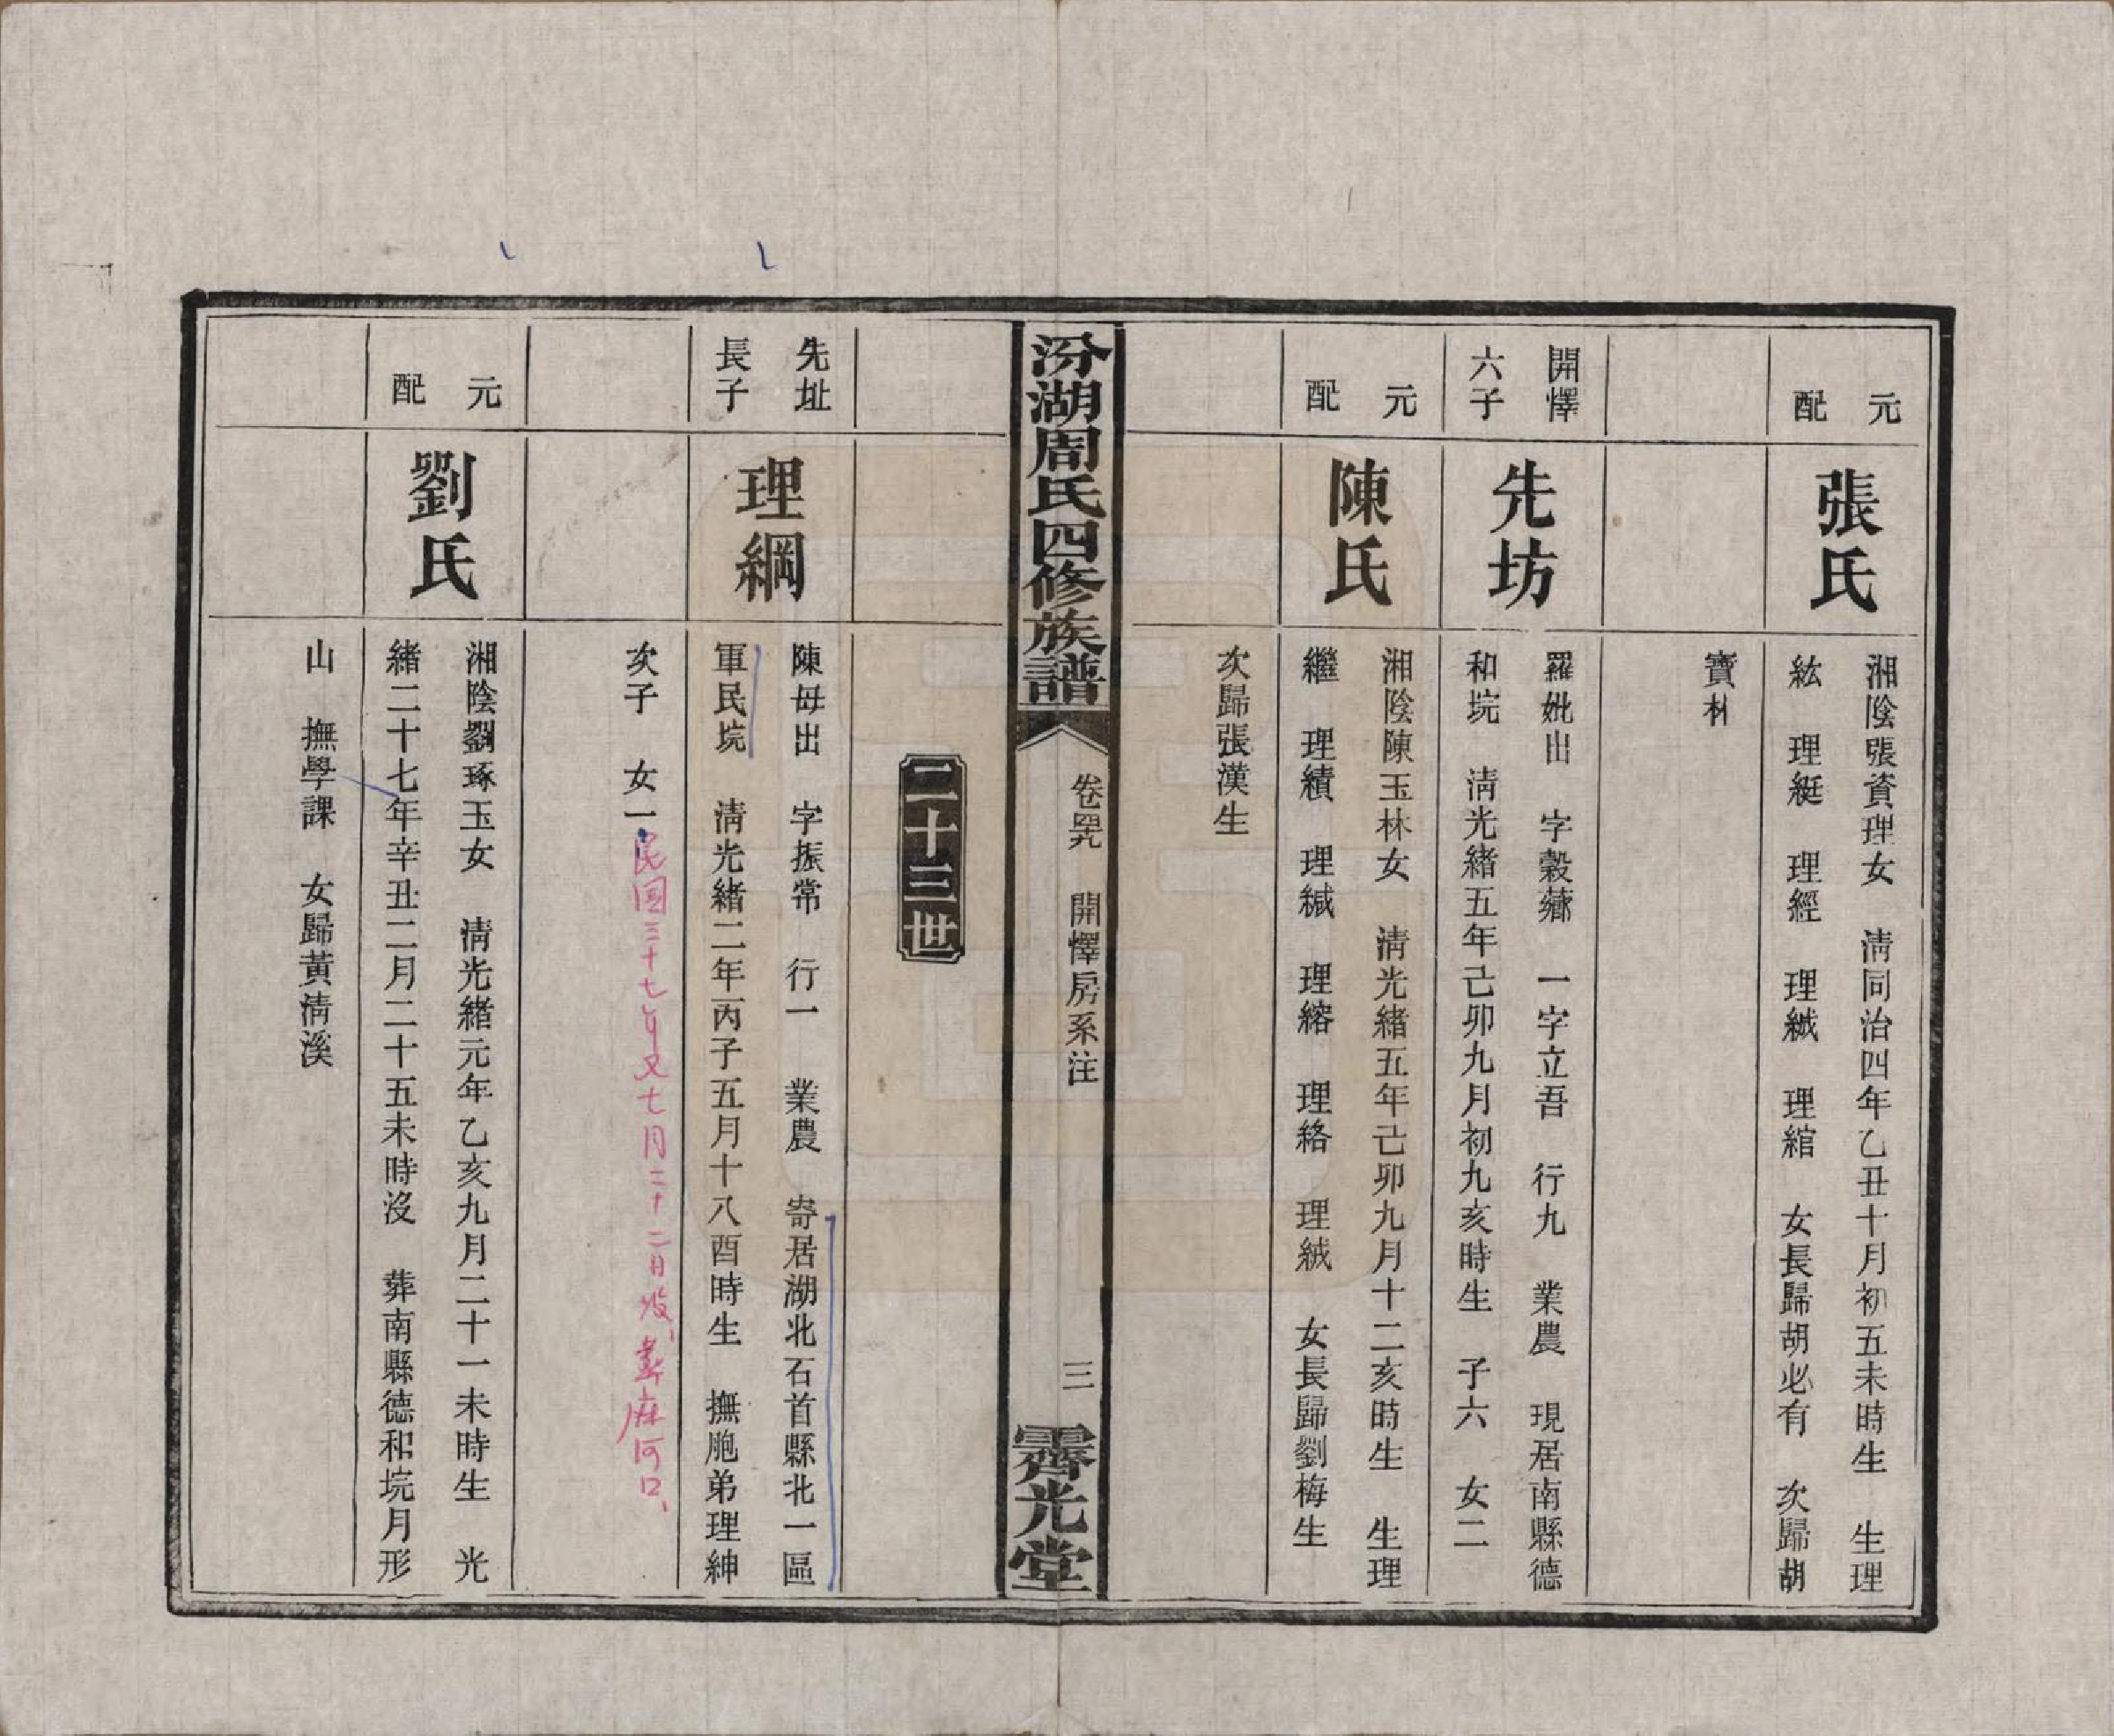 元配
張氏
湘陰張資理女　清同治四年乙丑十月初五未時生　生理
紘　理綎　理經　理緎　理綰　女長歸胡必有　次歸胡
寶林
開懌
六子
先坊
羅妣出　字穀薌　一字立吾　行九　業農　現居南縣德
和垸　清光緒五年己卯九月初九亥時生　子六　女二
元配
陳氏
湘陰陳玉林女　清光緒五年己卯九月十二亥時生　生理
繼　理績　理緘　理綹　理絡　理絨　女長歸劉梅生
次歸張漢生
汾湖周氏四修族譜
卷四九　開懌房系注　三
霽光堂
二十三世
先址
長子
理綱
陳母出　字振常　行一　業農　寄居湖北石首縣北一區
軍民垸　清光緒二年丙子五月十八酉時生　撫胞弟理紳
次子　女一　民国三十七年又七月二十二日歿、葬麻河口、
元配
劉氏
湘陰劉琢玉女　清光緒元年乙亥九月二十一未時生　光
緒二十七年辛丑二月二十五未時沒　葬南縣德和垸月形
山　撫學課　女歸黃清溪